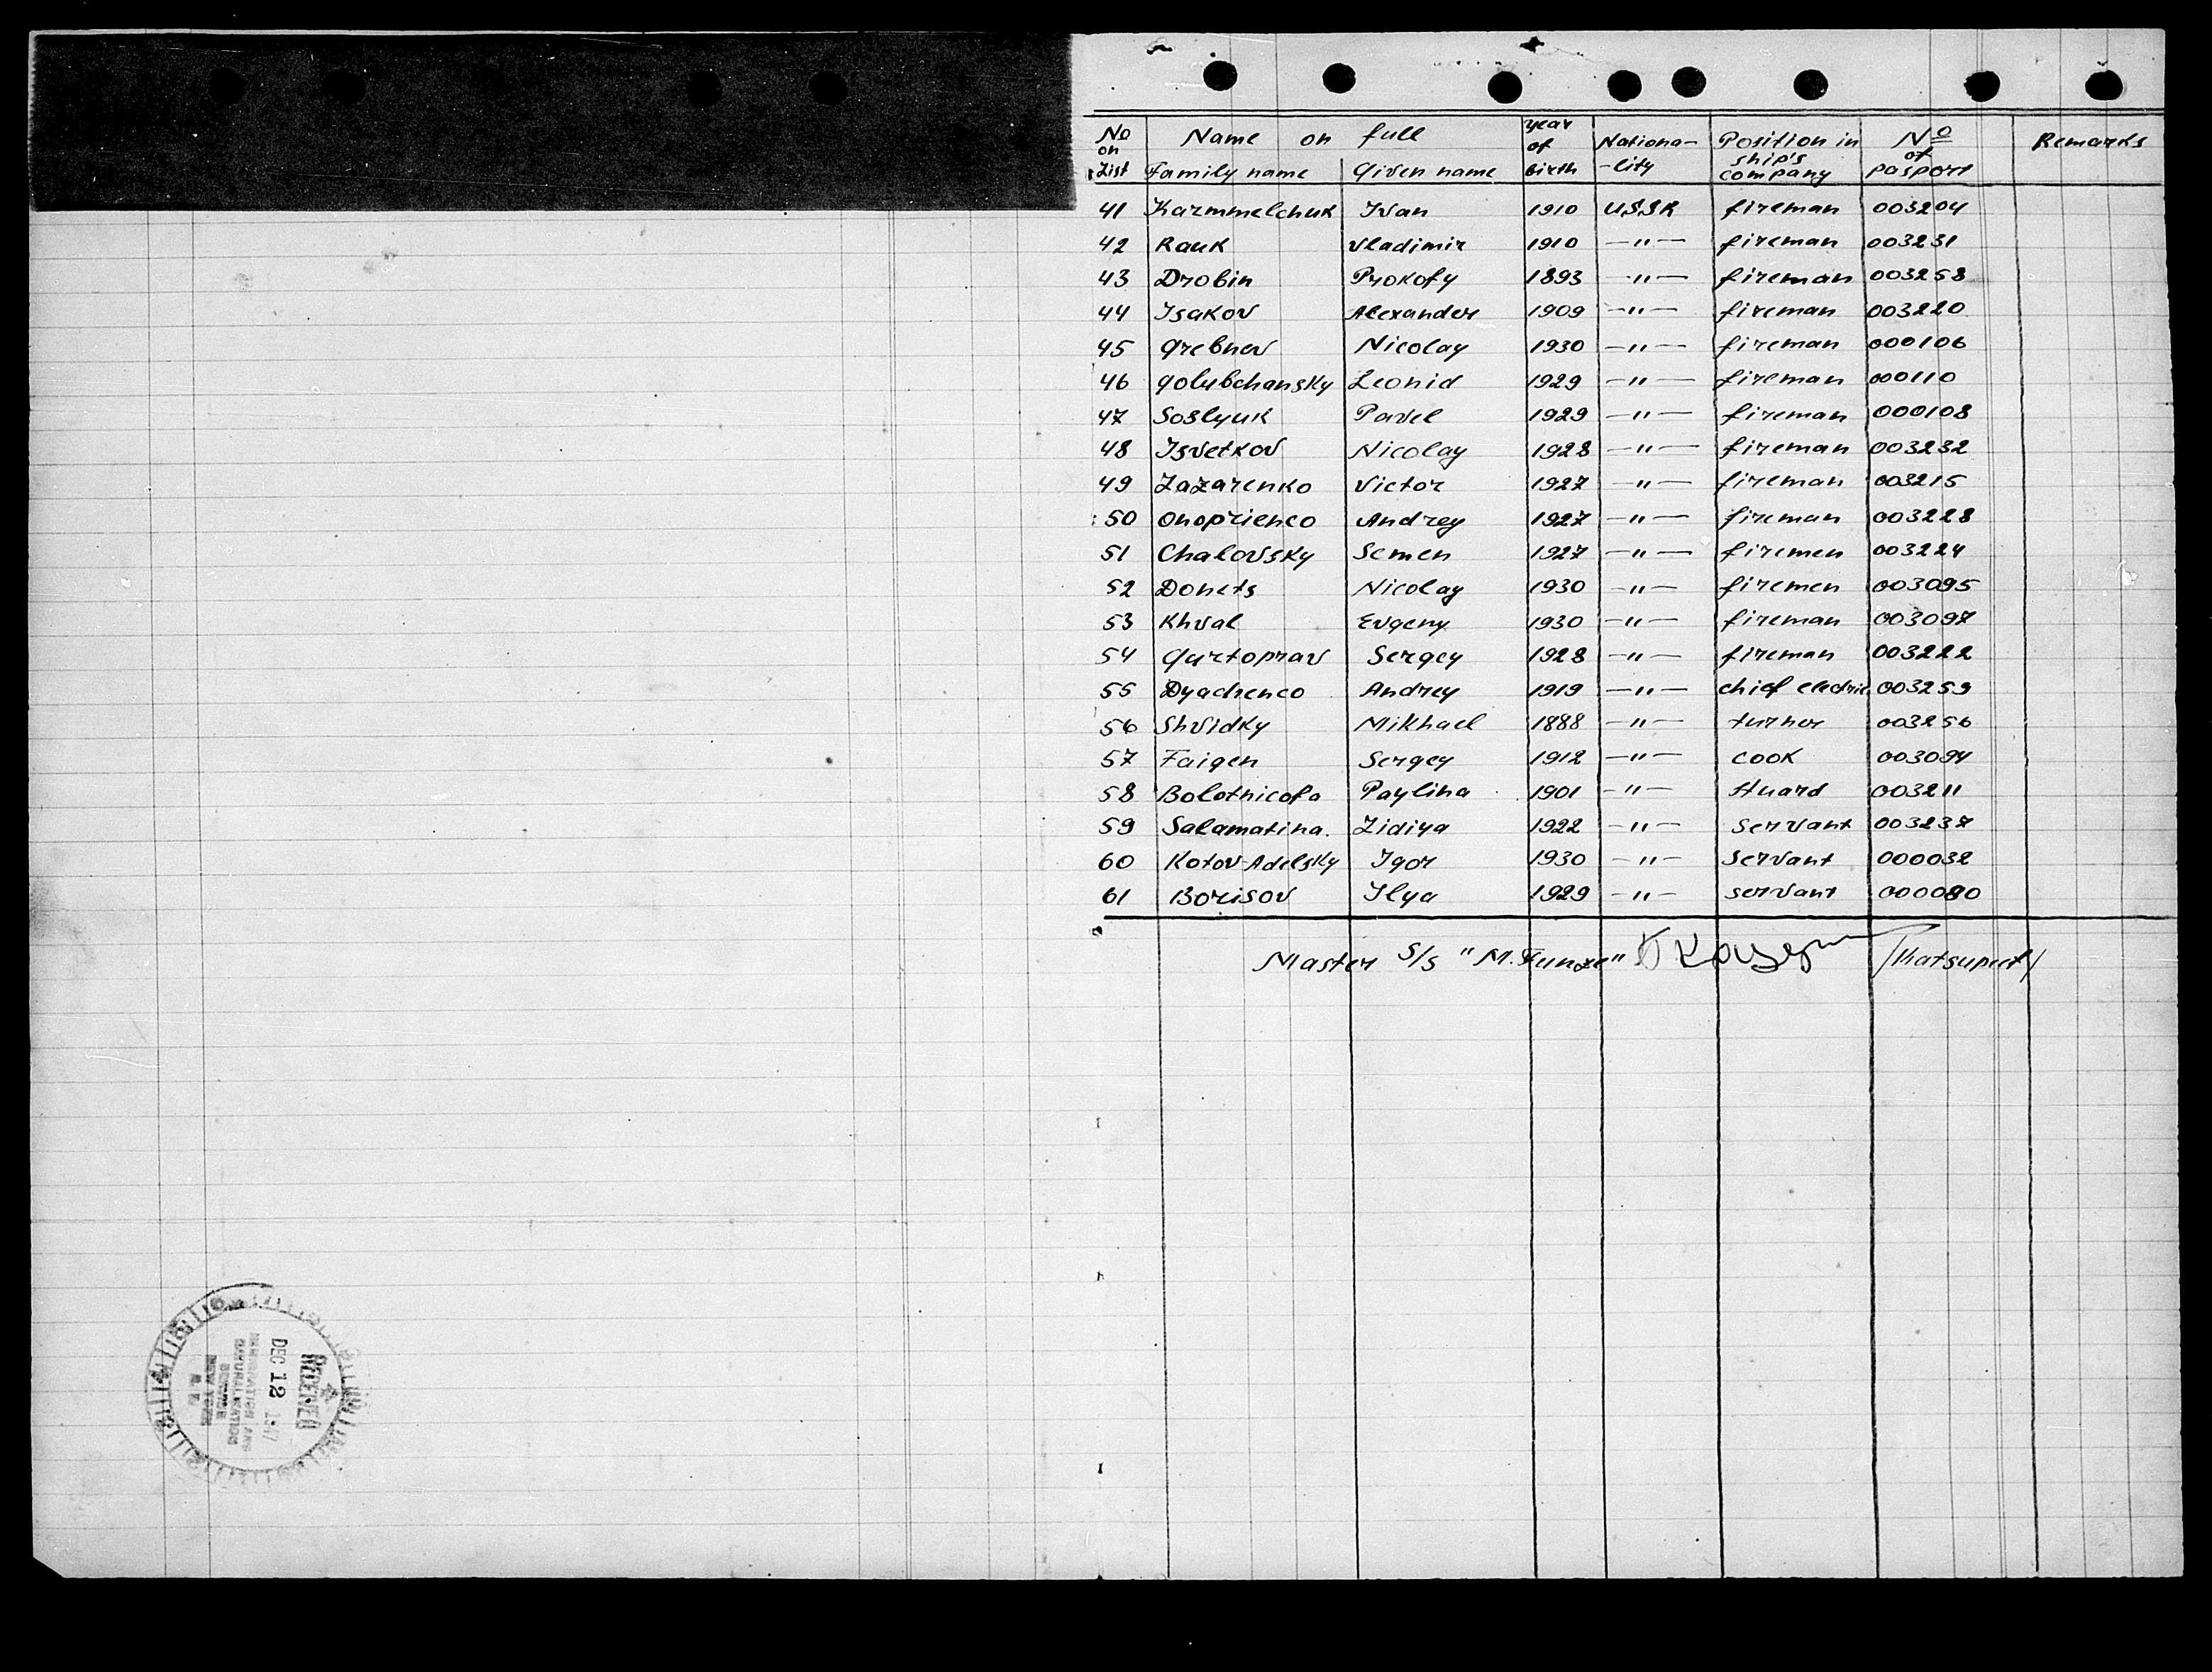 No on List Name on full Family name Given name year of birth Nationa- -lity Position in ship's company No of pasport Remarks
41 Karmmelchuk Ivan 1910 USSR fireman 003204
42 Rauk Vladimir 1910 —"— fireman 003231
43 Drobin Prokofy 1893 —"— fireman 003258
44 Isakov Alexander 1909 —"— fireman 003220
45 Grebnev Nicolay 1930 —"— fireman 000106
46 Golubchansky Leonid 1929 —"— fireman 000110
47 Soslyuk Pavel 1929 —"— fireman 000108
48 Isvetkov Nicolay 1928 —"— fireman 003232
49 Lazarenko Victor 1927 —"— fireman 003215
50 Onoprienco Andrey 1927 —"— fireman 003228
51 Chalovsky Semen 1927 —"— firemen 003224
52 Donets Nicolay 1930 —"— firemen 003095
53 Khval Evgeny 1930 —"— fireman 003097
54 Gurtoprav Sergey 1928 —"— fireman 003222
55 Dyachenco Andrey 1919 —"— chief electric 003259
56 Shvidky Mikhael 1888 —"— turner 003256
57 Faigen Sergey 1912 —"— cook 003094
58 Bolotnicofa Paylina 1901 —"— Stuard 003211
59 Salamatina. Lidiya 1922 —"— servant 003237
60 Kotov-Adelsky Igor 1930 —"— servant 000032
61 Borisov Ilya 1929 —"— servant 000080
Master S/S "M. Frunze" /Katsupert/
RECEIVED
DEC 12 1947
IMMIGRATION AND
NATURALIZATION
SERVICE
NEW YORK